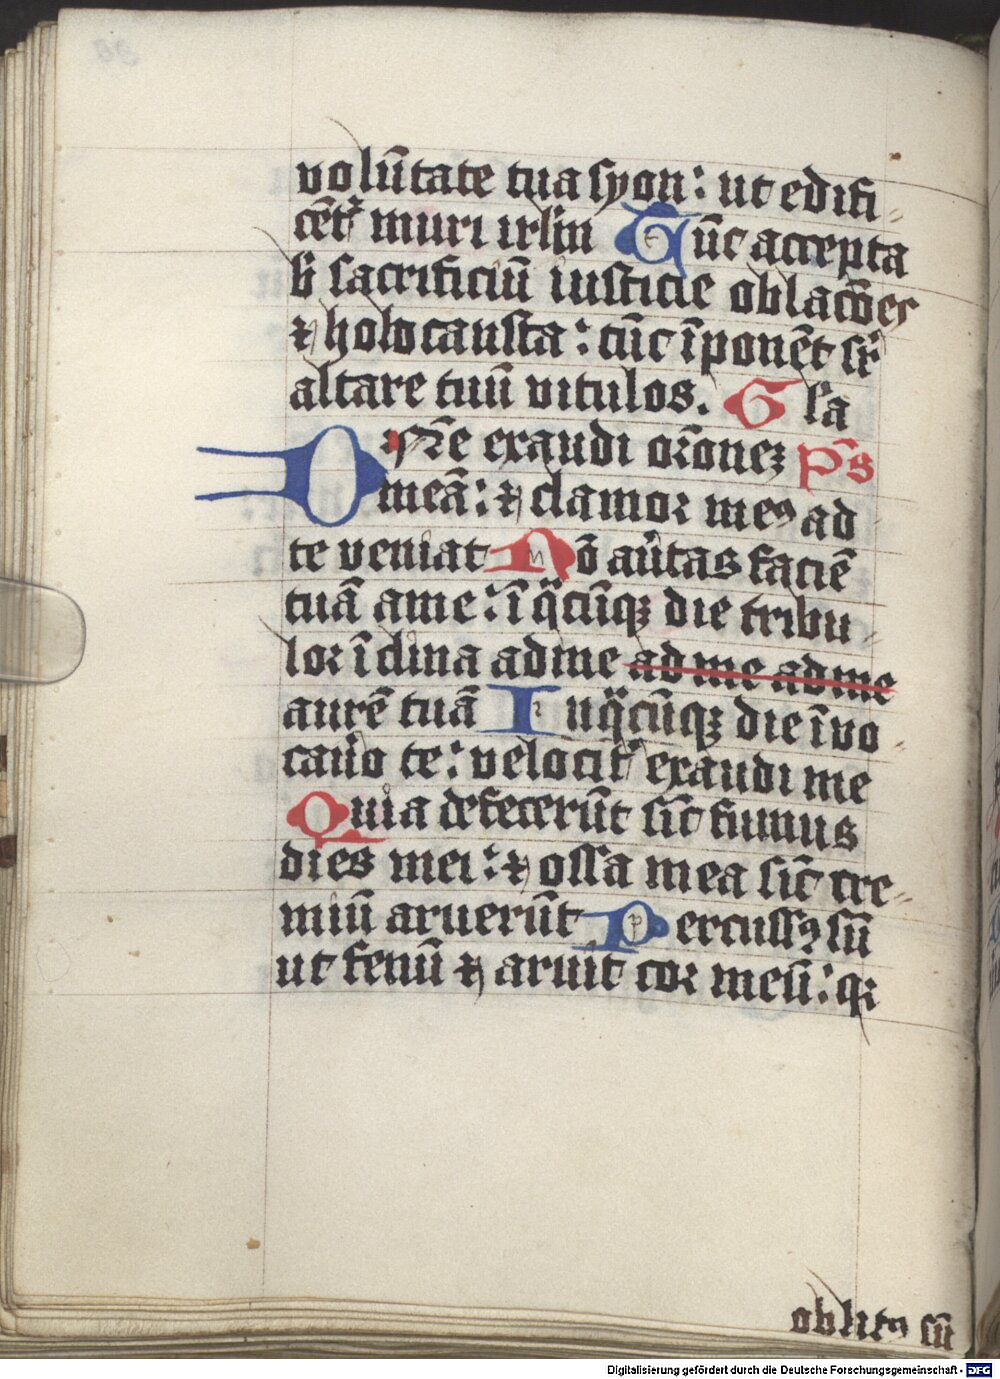 volūtate tua syon: ut edifi
cēt᷑ muri irl̄m Tūc accepta
b᷑ sacrificiū iusticie oblac̄oes
⁊ holocausta: tūc īponēt sr̄
altare tuū vitulos. Gl̄a
Dn̄e exaudi or̄oneꝫ p̄s
meā: ⁊ clamor meꝰ ad
te veniat Nō au̾tas faciē
tuā a me: ī q̄cūqꝫ die tribu
lor īclina ad me ad me ad me
aurē tuā In q̄cūqꝫ die īvo
cau̾o te: velocit̾ exaudi me
Quia defecerūt sic̄ fumus
dies mei: ⁊ ossa mea sic̄ cre
miū aruerūt Percussꝰ sū
ut fenū ⁊ aruit cor meū: qꝛ
oblitꝰ sū
Digitalisierung gefördert durch die Deutsche Forschungsgemeinschaft - DFG